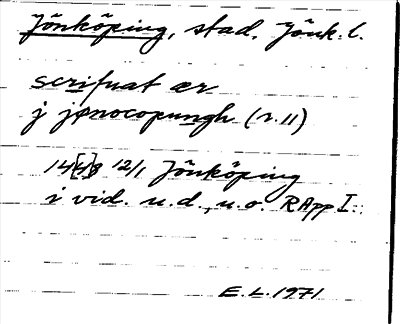 Jönköping, stad. Jönk. l.
scrifuat ær
j jønocopungh (r. 11)
14[4]8 12/1 Jönköping
i vid. u.d., u.o. RApp I.
E.L. 1971